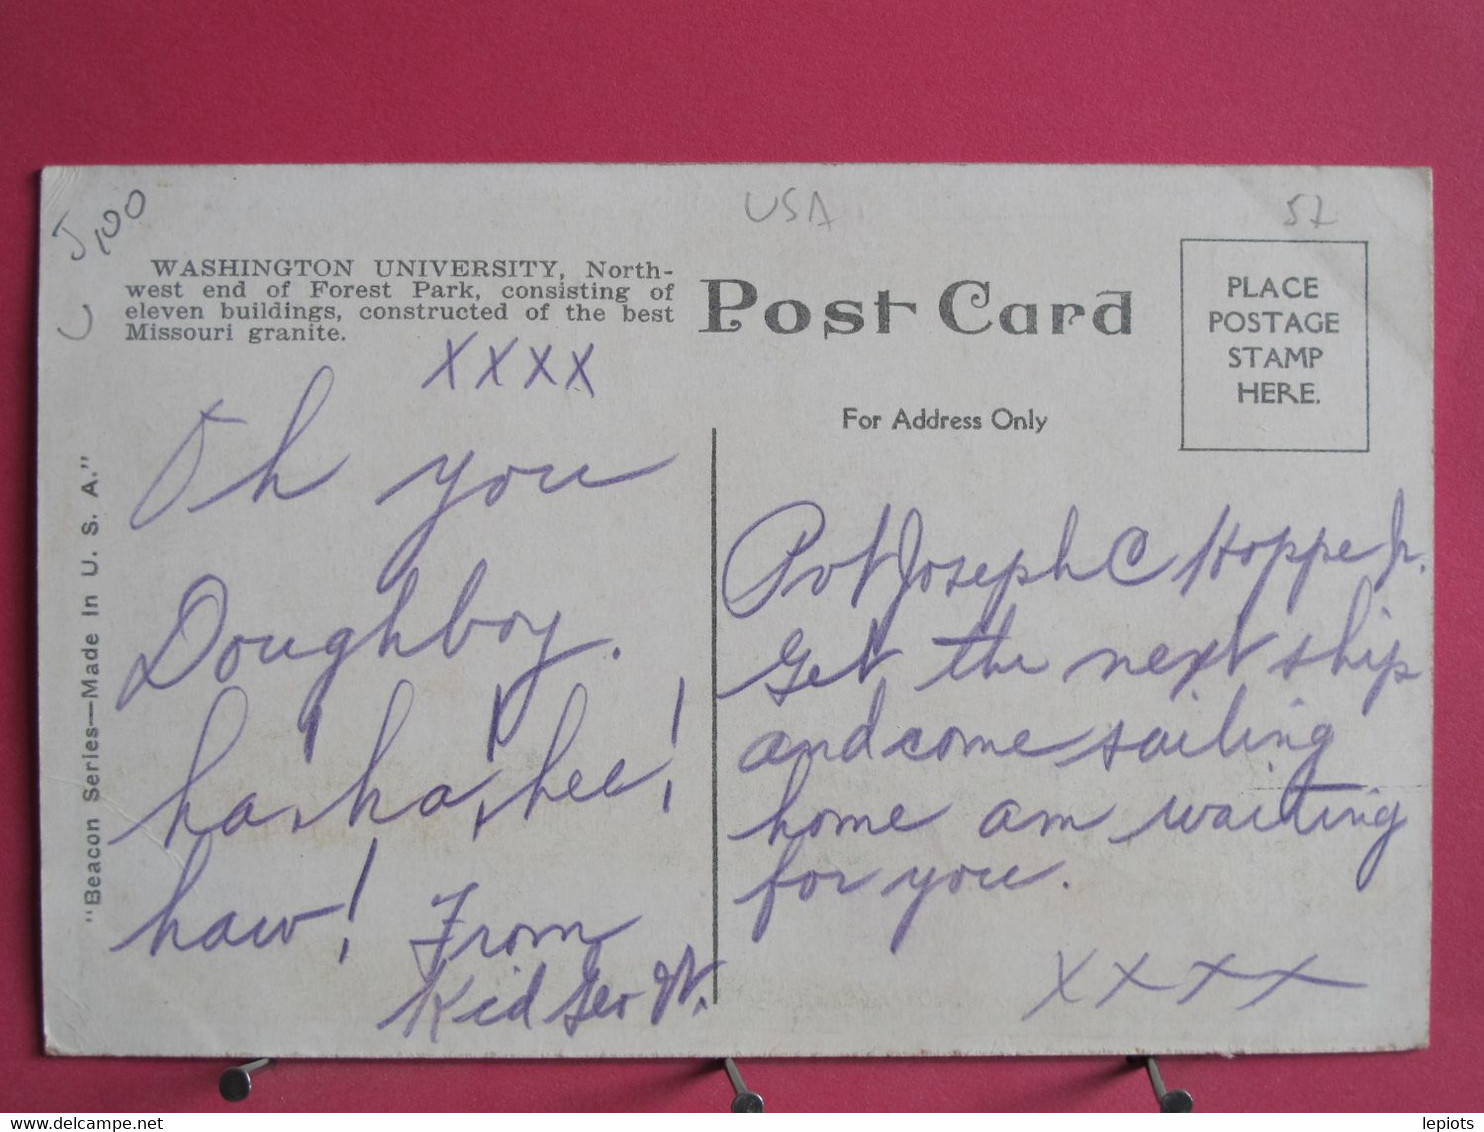 J,100
USA
57
WASHINGTON UNIVERSITY, North-
west end of Forest Park, consisting of
eleven buildings, constructed of the best
Missouri granite.
Post Card
For Address Only
PLACE
POSTAGE
STAMP
HERE.
"Beacon Series—Made In U. S. A."
xxxx
Oh you
Doughboy.
ha! ha! hee!
haw! From
Kid Geo W.
Pvt Joseph C Hoppe Jr.
Get the next ship
and come sailing
home am waiting
for you.
xxxx
https://www.delcampe.net
lepiots